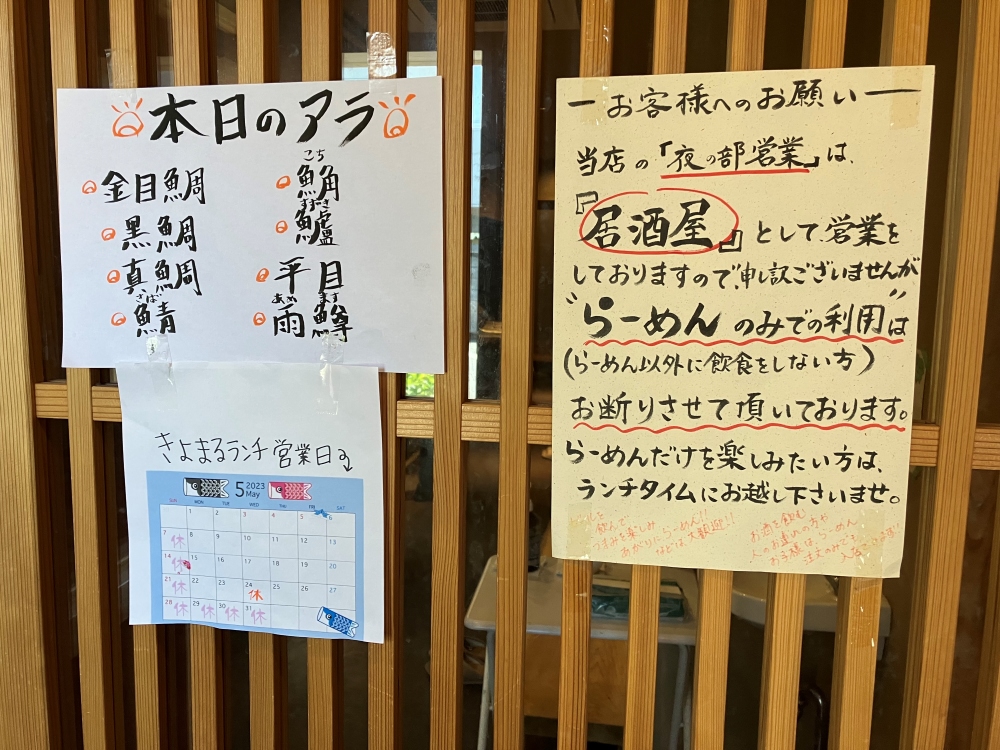 本日のアラ
金目鯛
黒鯛
真鯛
さば
鯖
こち
鯒
すずき
鱸
平目
あめ ます
雨鱒
きよまるランチ営業日
5 2023 May
SUN MON TUE WED THU FRI SAT
1 2 3 4 5 6
7 休 8 9 10 11 12 13
14 休 15 16 17 18 19 20
21 休 22 23 24 休 25 26 27
28 休 29 休 30 休 31 休
ーお客様へのお願いー
当店の「夜の部営業」は、
『居酒屋』として営業を
しておりますので、申し訳ございませんが
"らーめんのみでの利用"は
(らーめん以外に飲食をしない方)
お断りさせて頂いております。
らーめんだけを楽しみたい方は、
ランチタイムにお越し下さいませ。
飲んで
つまみを楽しみ
あがりにらーめん!!
などは、大歓迎!!
お酒を飲む
人のお連れの方や
お子様はらーめん
注文のみでも